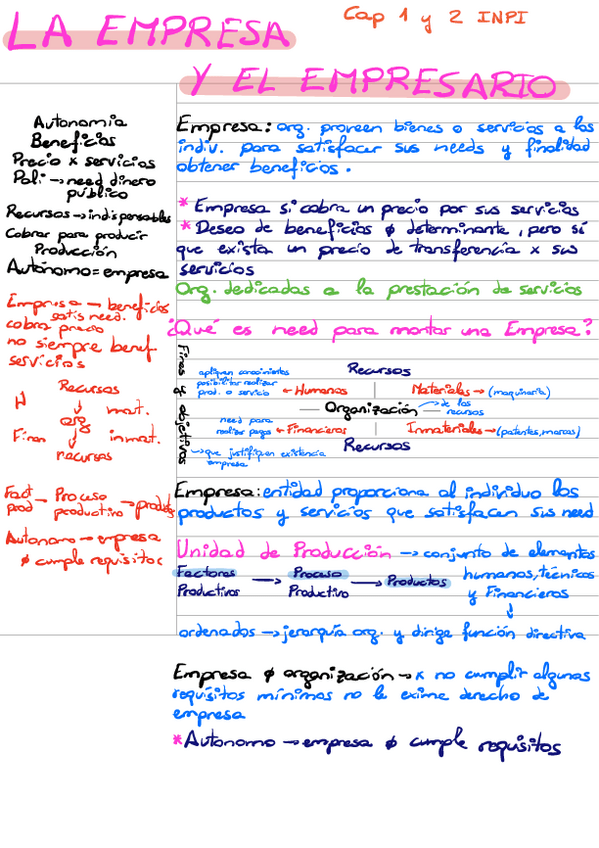 Cap 1 y 2 INPI
LA EMPRESA
Y EL EMPRESARIO
Autonomia
Beneficios
Precio x servicios
Poli → need dinero
público
Recursos → indispensables
Cobrar para producir
Producción
Autónomo = empresa
Empresa — beneficios
satis need.
cobra precio
no siempre benef.
servicios
Recursos
H mat.
org
Finan inmat.
recursos
Fact → Proceso → produtos
prod productivo
Autonomo → empresa
∅ cumple requisitos
Empresa: org. proveen bienes o servicios a los
indiv. para satisfacer sus needs y finalidad
obtener beneficios.
* Empresa si cobra un precio por sus servicios
* Deseo de beneficios ∅ determinante, pero sí
que exista un precio de transferencia x sus
servicios
Org. dedicadas a la prestación de servicios
¿Qué es need para montar una Empresa?
Fines y objetivos
Recursos
apliquen conocimientos
posibilitar realizar
prod. o servicio ← Humanos | Materiales → (maquinaria)
— Organización → de los
recursos
need para
realizar pagos ← Financieros | Inmateriales → (patentes, marcas)
Recursos
→ que justifiquen existencia
empresa
Empresa: entidad proporciona al individuo los
productos y servicios que satisfacen sus need
Unidad de Producción → conjunto de elementos
Factores → Proceso → Productos humanos, técnicos
Productivos Productivo y Financieros
↓
ordenados → jerarquía org. y dirige función directiva
Empresa ∅ organización → x no cumplir algunas
requisitos mínimas no le exime derecho de
empresa
* Autonomo → empresa ∅ cumple requisitos